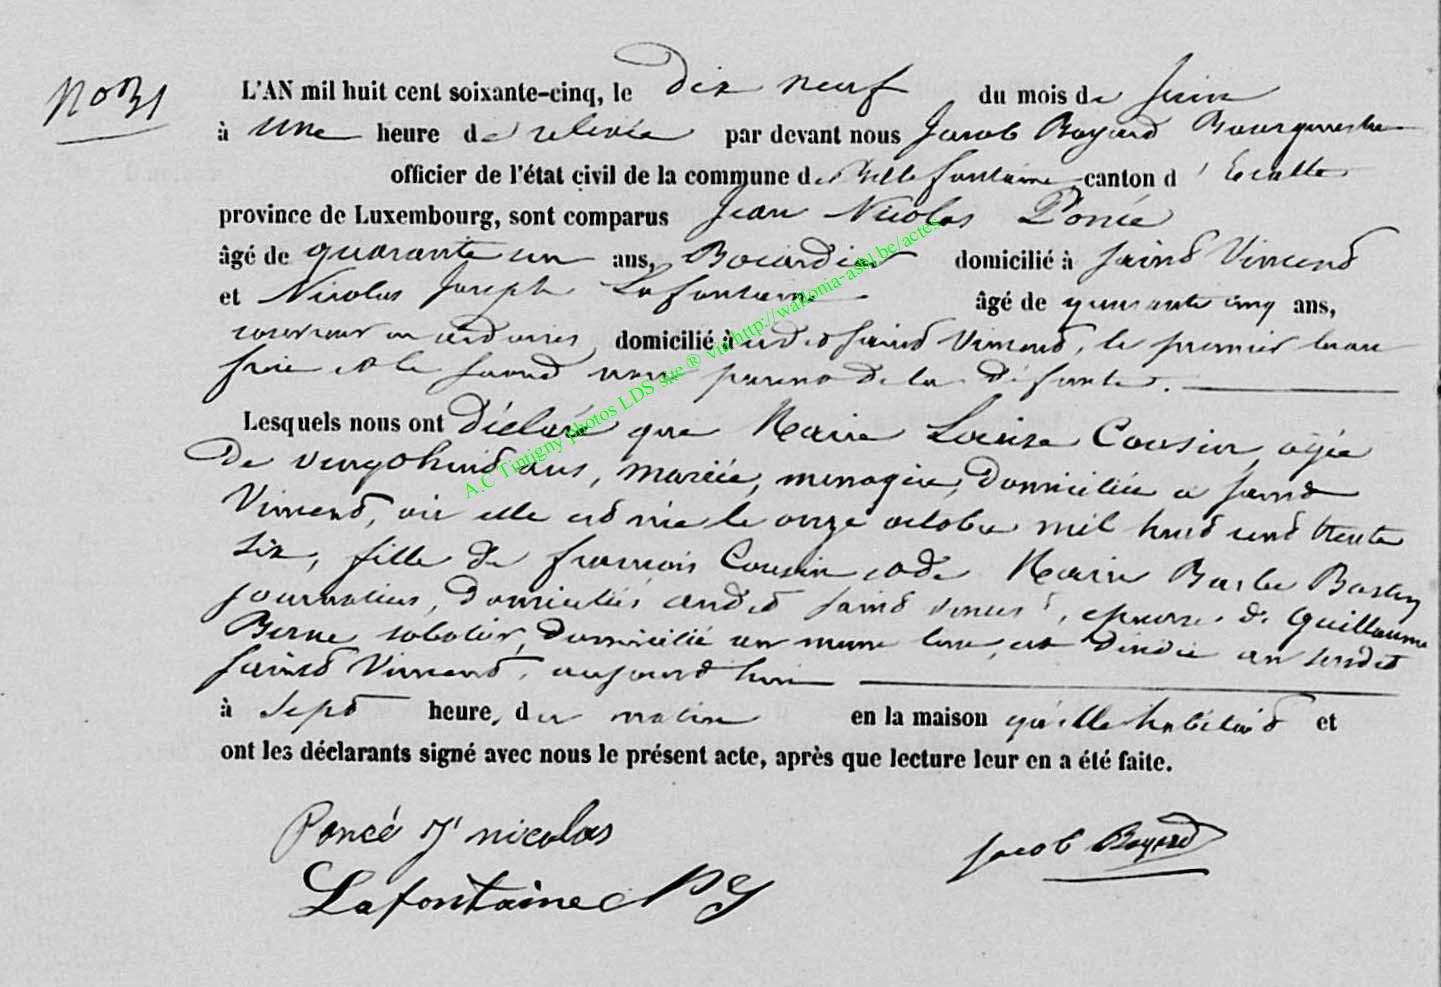 No 31
L'AN mil huit cent soixante-cinq, le dix neuf du mois de juin
à une heure de relevée par devant nous Jacob Boyard Bourgmestre
officier de l'état civil de la commune de Bellefontaine canton d'Etalle
province de Luxembourg, sont comparus Jean Nicolas Poncé
âgé de quarante un ans, domicilié à Saint Vincent
et Nicolas Joseph Lafontaine âgé de quarante cinq ans,
couvreur en ardoises domicilié à Saint Vincent, le premier beau
frère et le second non parent de la défunte.
Lesquels nous ont déclaré que Marie Louise Cousin, agée
de vingt huit ans, mariée, menagère, domiciliée à Saint
Vincent, où elle est née le onze octobre mil huit cent trente
six, fille de françois Cousin et de Marie Barbe
journaliers, domiciliés audit Saint Vincent, epouse de Guillaume
sabotier, domicilié au meme lieu, est décédée au susdit
Saint Vincent, aujourd'hui
à sept heure, du matin en la maison qu'elle habitait et
ont les déclarants signé avec nous le présent acte, après que lecture leur en a été faite.
Poncé J nicolas
Jacob Boyard
Lafontaine N J
A.C Tintigny photos LDS site ® via http://wallonia-asbl.be/actes